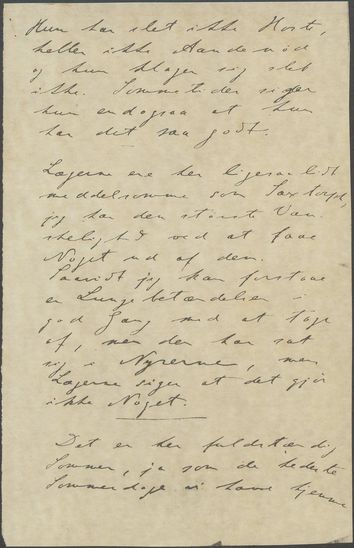 Hun har slet ikke Hoste,
heller ikke Aandenød
og hun klager sig slet
ikke. Sommetider siger
hun endogsaa at hun
har det saa godt.
Lægerne ere her ligesaa lidt
meddelsomme som Saxtorph,
jeg har den største Van-
skelighed ved at faae
Noget ud af dem.
Saavidt jeg kan forstaae
er Lungebetændelsen i
god Gang med at tage
af, men den har sat
sig i Nyrerne, men
Lægerne siger at det gjør
ikke Noget.
Det er her fuldstændig
Sommer, ja som de bedste
Sommerdage vi have hjemme